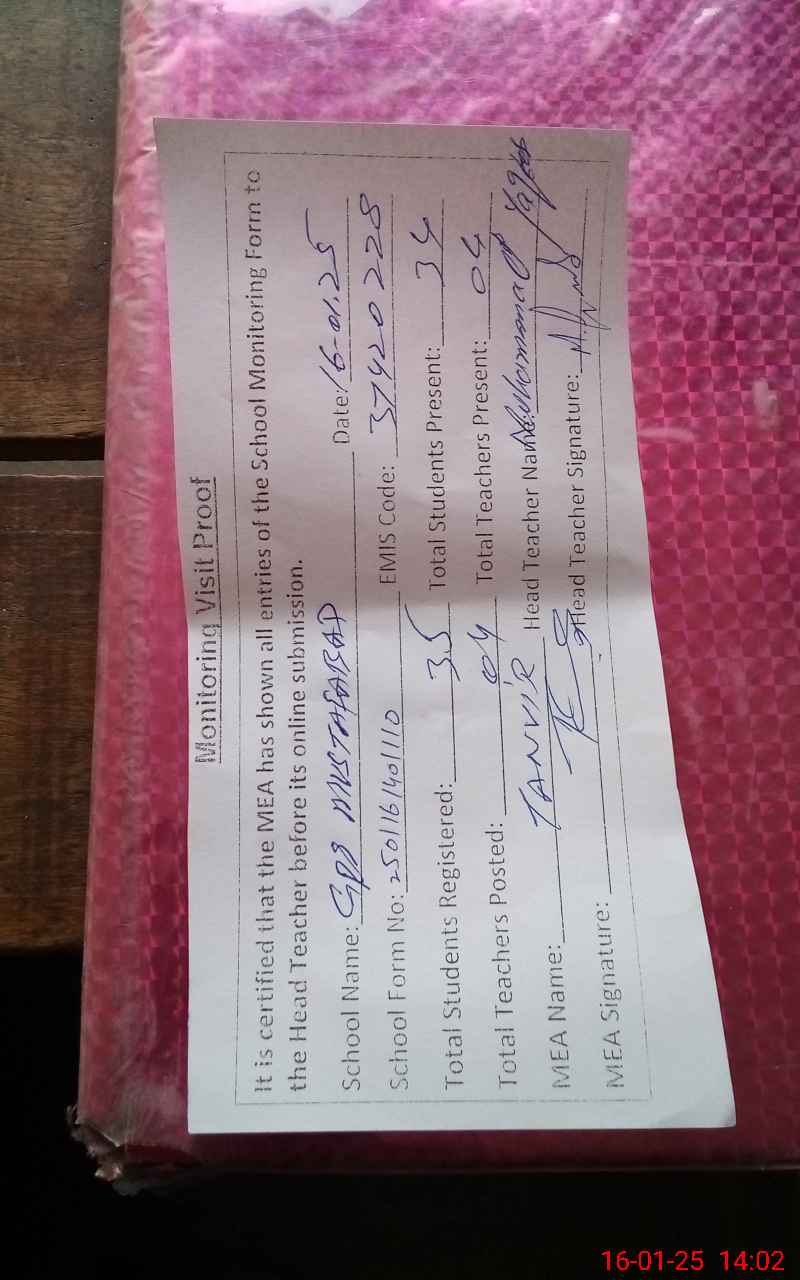 Monitoring Visit Proof
It is certified that the MEA has shown all entries of the School Monitoring Form to
the Head Teacher before its online submission.
School Name: GPS MUSTAFABAD Date: 16-01.25
School Form No: 2501161401110 EMIS Code: 37420228
Total Students Registered: 35 Total Students Present: 34
Total Teachers Posted: 04 Total Teachers Present: 04
MEA Name: TANVIR Head Teacher Name: Muhammad
MEA Signature: Head Teacher Signature:
16-01-25 14:02